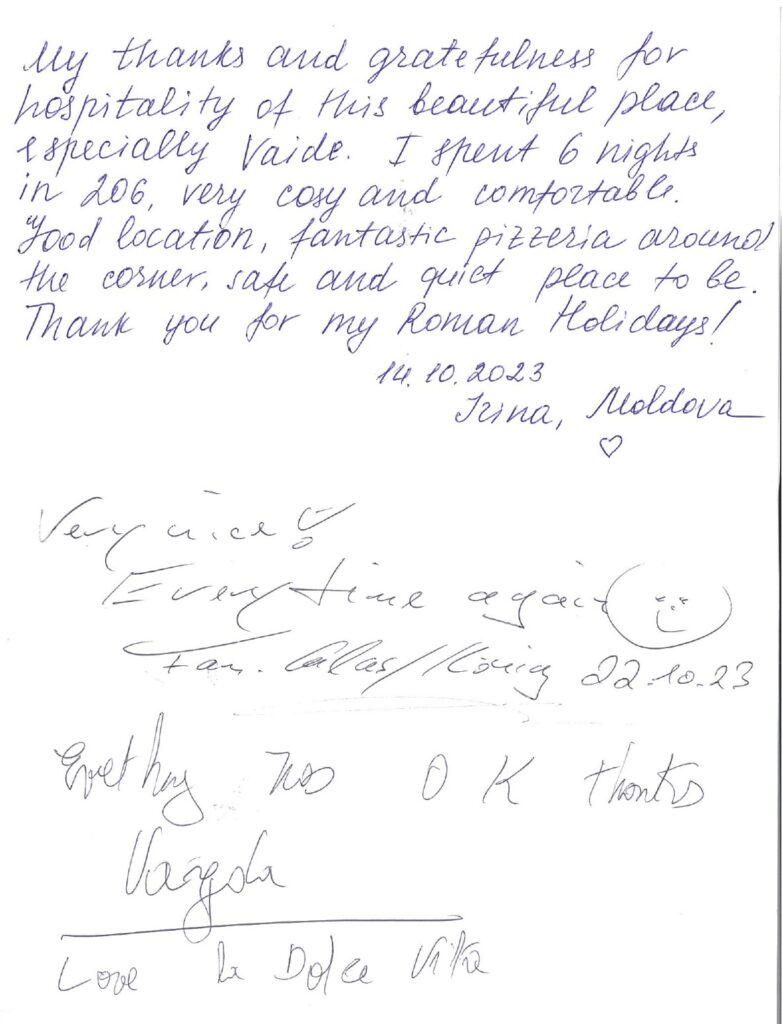 My thanks and gratefulness for
hospitality of this beautiful place,
especially Vaide. I spent 6 nights
in 206, very cosy and comfortable.
Good location, fantastic pizzeria around
the corner, safe and quiet place to be.
Thank you for my Roman Holidays!
14.10.2023
Irina, Moldova
Very nice!
Every time again
Fam. /König 22.10.23
O K
Love la Dolce Vita